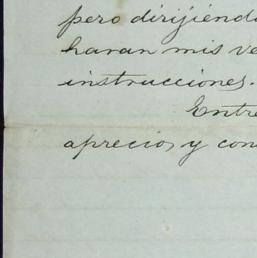 pero dirijiendo
haran mis ve
instrucciones.
Entre
aprecio, y con